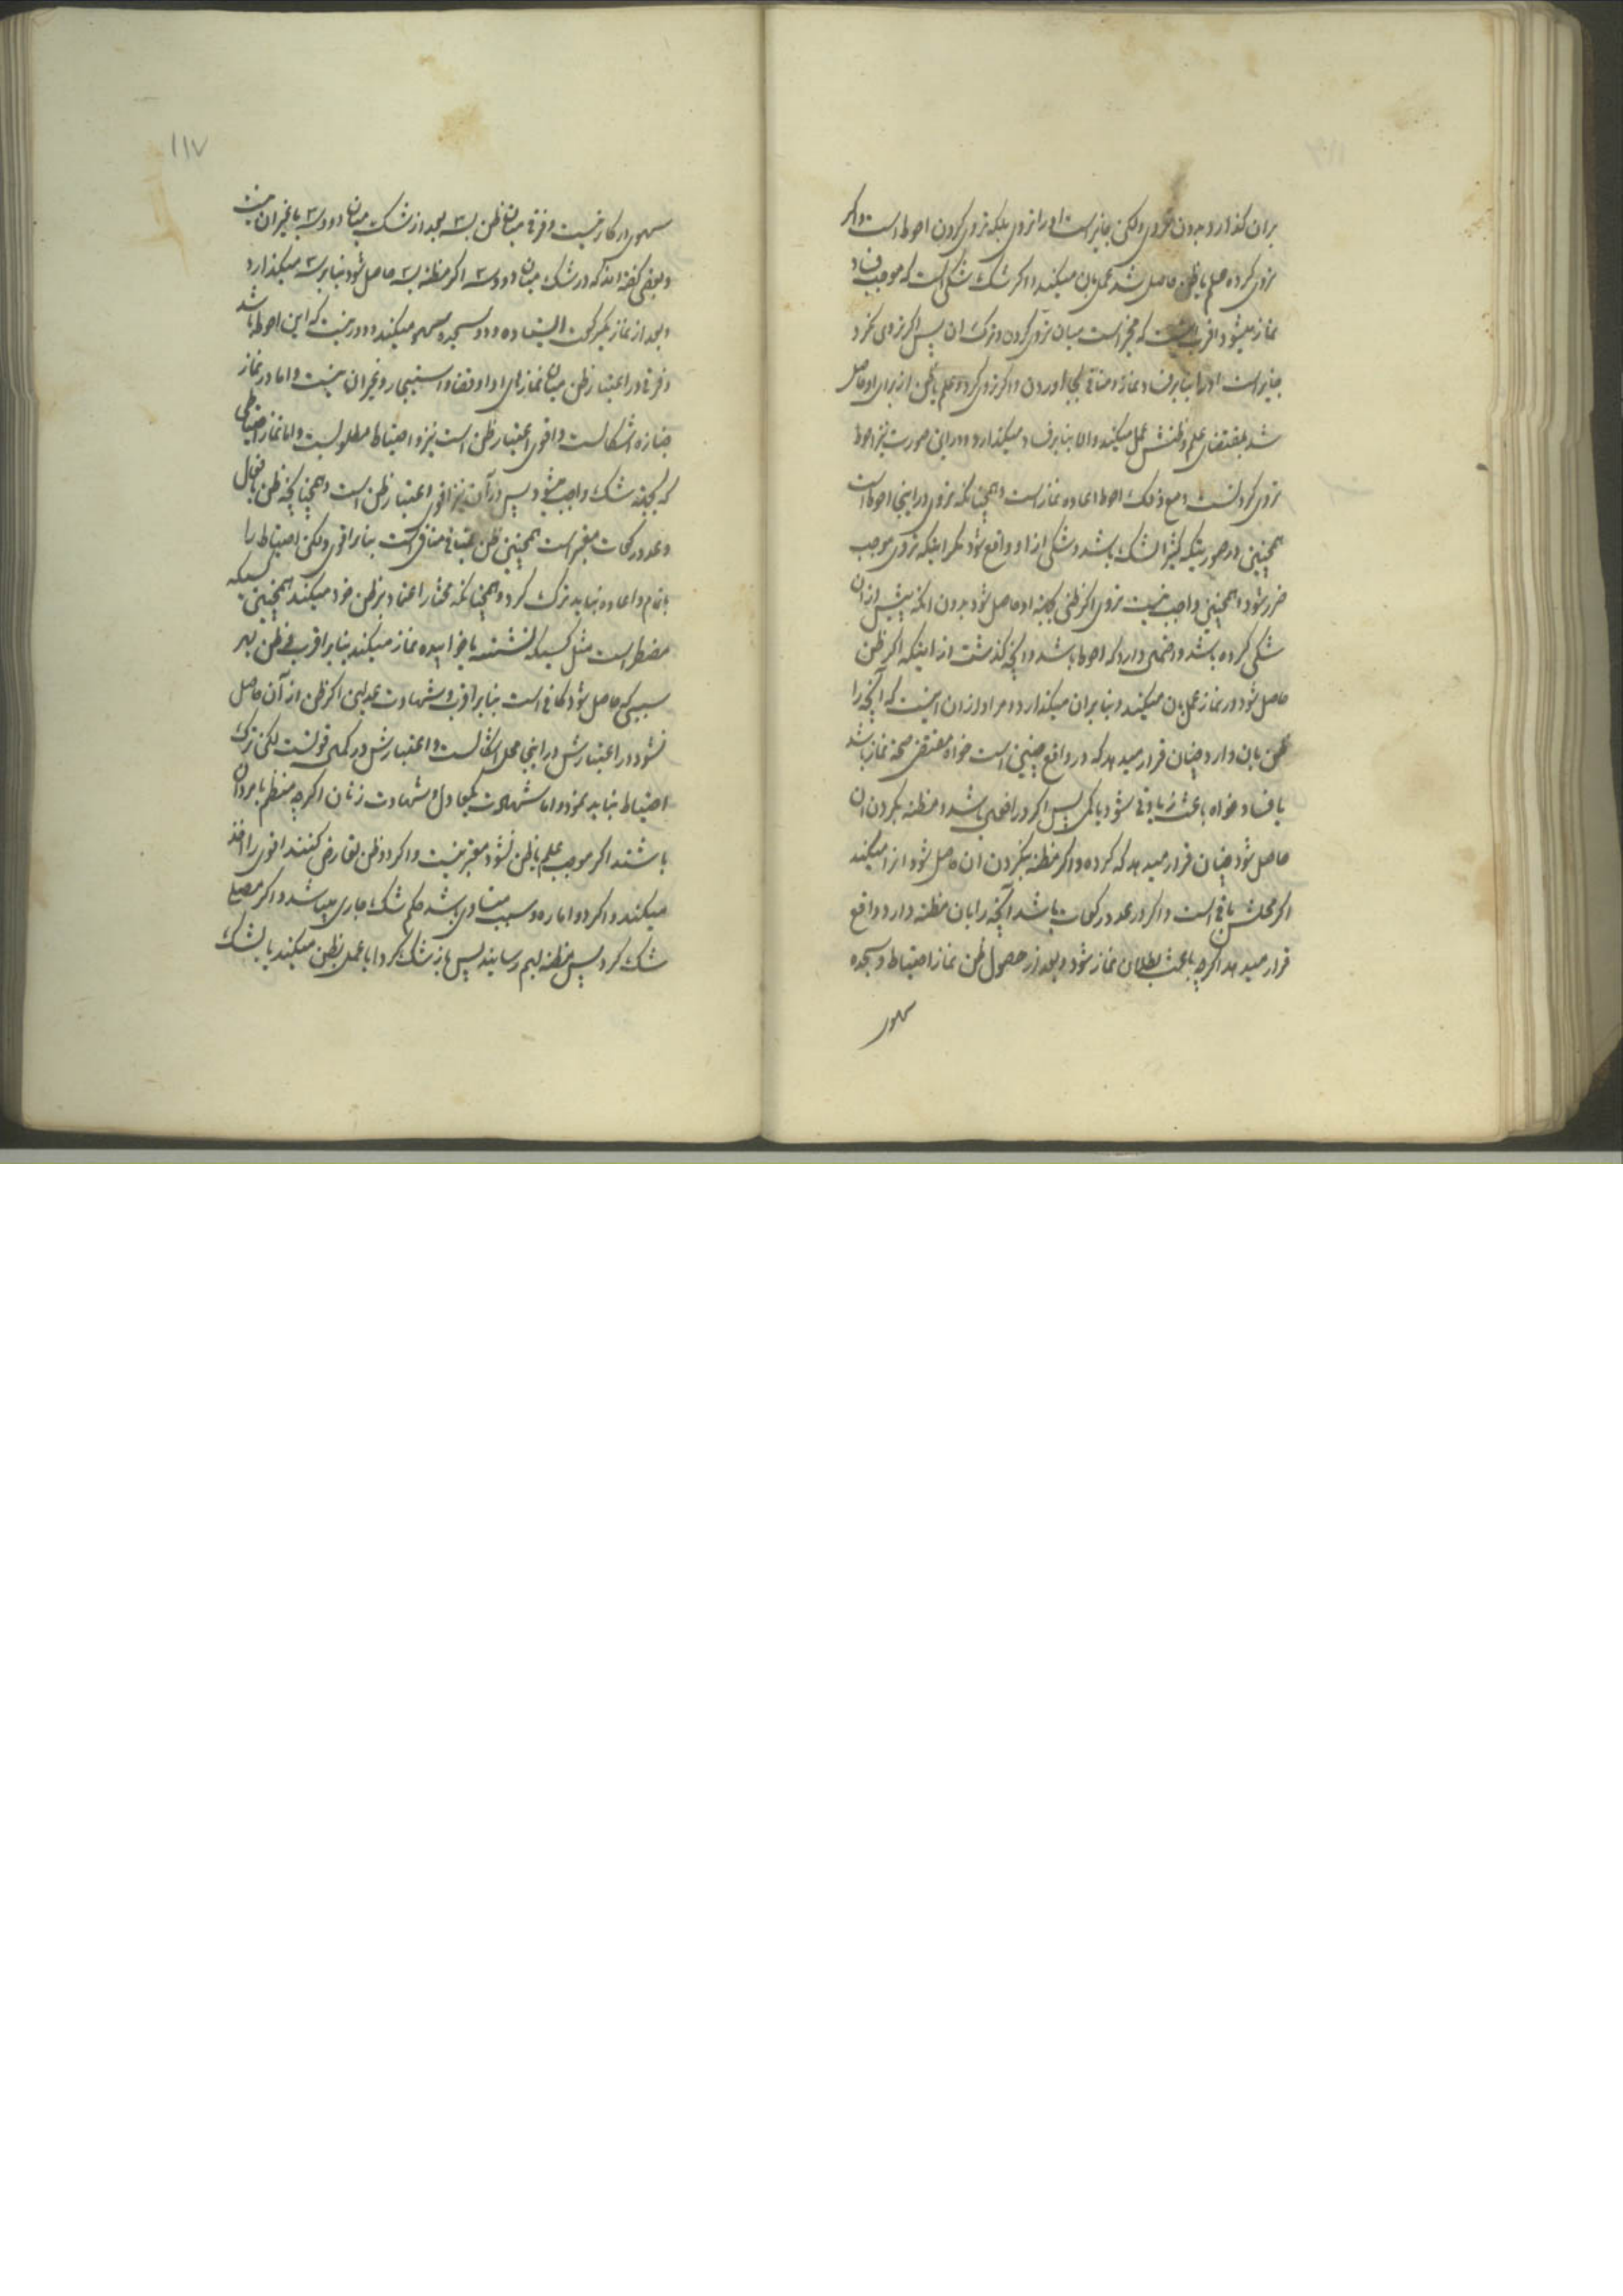 بران گذارد و بدون تروی ولکن جایز است او را تروی بلکه تروی کردن احوط است و اگر
تروی کرده علم یا ظن حاصل شد عمل بان میکند و اگر شک شکی است که موجب فساد
نماز میشود اقرب اینست که مخیر است میان تروی کردن و ترک ان پس اگر تروی نکرد
جایز است او را بنا بر فساد نماز و منافی بجا آوردن و اگر تروی کرد و علم یا ظن از برای او حاصل
شد بمقتضای علم و ظنش عمل میکند و الا بنا بر فساد میگذارد و در این صورت نیز احوط
تروی کردنست و مع ذلک احوط اعاده نماز است و همچنانکه تروی در اینجا احوط است
همچنین در صورتیکه کثیر الشک باشد و شکی از او واقع شود مگر اینکه تروی موجب
ضرر شود و همچنین واجب نیست تروی اگر ظنی بجهة او حاصل شود بدون انکه پیش از ان
شکی کرده باشد و احتمال دارد که احوط باشد و انچه گذشت از اینکه اگر ظن
حاصل شود در نماز عمل بان میکند و بنا بر ان میگذارد و مراد از ان اینست که آنچه را
ظن بان دارد چنان قرار میدهد که در واقع چنین است خواه مقتضی صحة نماز باشد
یا فساد خواه باعث زیادتی شود یا کمی پس اگر در افعال باشد و مظنه بکردن ان
حاصل شود چنان قرار میدهد که کرده و اگر مظنه بنکردن ان حاصل شود انرا میکند
اگر محلش باقی است و اگر در عدد رکعات باشد آنچه را بان مظنه دارد واقع
قرار میدهد اگرچه باعث بطلان نماز شود و بعد از حصول ظن نماز احتیاط و سجده
سهو
۱۱۷
سهوی در کار نیست و فرقی میان ظن بسه بعد از شک میان دو و سه یا غیر ان نیست
و بعضی گفته اند که در شک میان دو و سه اگر مظنه بسه حاصل شود بنا بر سه میگذارد
و بعد از نماز یکرکعت ایستاده و دو سجده سهو میکند و دور نیست که این احوط باشد
و فرقی در اعتبار ظن میان نمازهای ادا و قضا و استیجار و غیر ان نیست و اما در نماز
جنازه اشکالست و اقوی اعتبار ظن است نیز و احتیاط مطلوبست و اما نماز احتیاطی
که بجهة شک واجب میشود پس در آن نیز اقوی اعتبار ظن است و همچنانچه ظن بافعال
و عدد رکعات معتبر است همچنین ظن باتیان منافی است بنا بر اقوی ولکن احتیاط را
باتمام و اعاده نباید ترک کرد و همچنانکه مختار اعتماد بر ظن خود میکند همچنین کسیکه
مضطر است مثل کسیکه نشسته یا خوابیده نماز میکند بنا بر اقرب و ظن بهر
سببی که حاصل شود کافی است بنا بر اقرب و شهادت عدلین اگر ظن از آن حاصل
نشود در اعتبارش در اینجا محل اشکالست و اعتبارش در کمال قوتست لکن ترک
احتیاط نباید نمود و اما شهادت یکعادل و شهادت زنان اگرچه منضم با مردان
باشند اگر موجب علم یا ظن نشود معتبر نیست و اگر دو ظن تعارض کنند اقوی را اخذ
میکند و اگر دو اماره و سبب مساوی باشد حکم شک جاری میباشد و اگر مصلی
شک کرد پس مظنه بهم رسانید پس باز شک کرد ایا عمل بظن میکند یا بشک